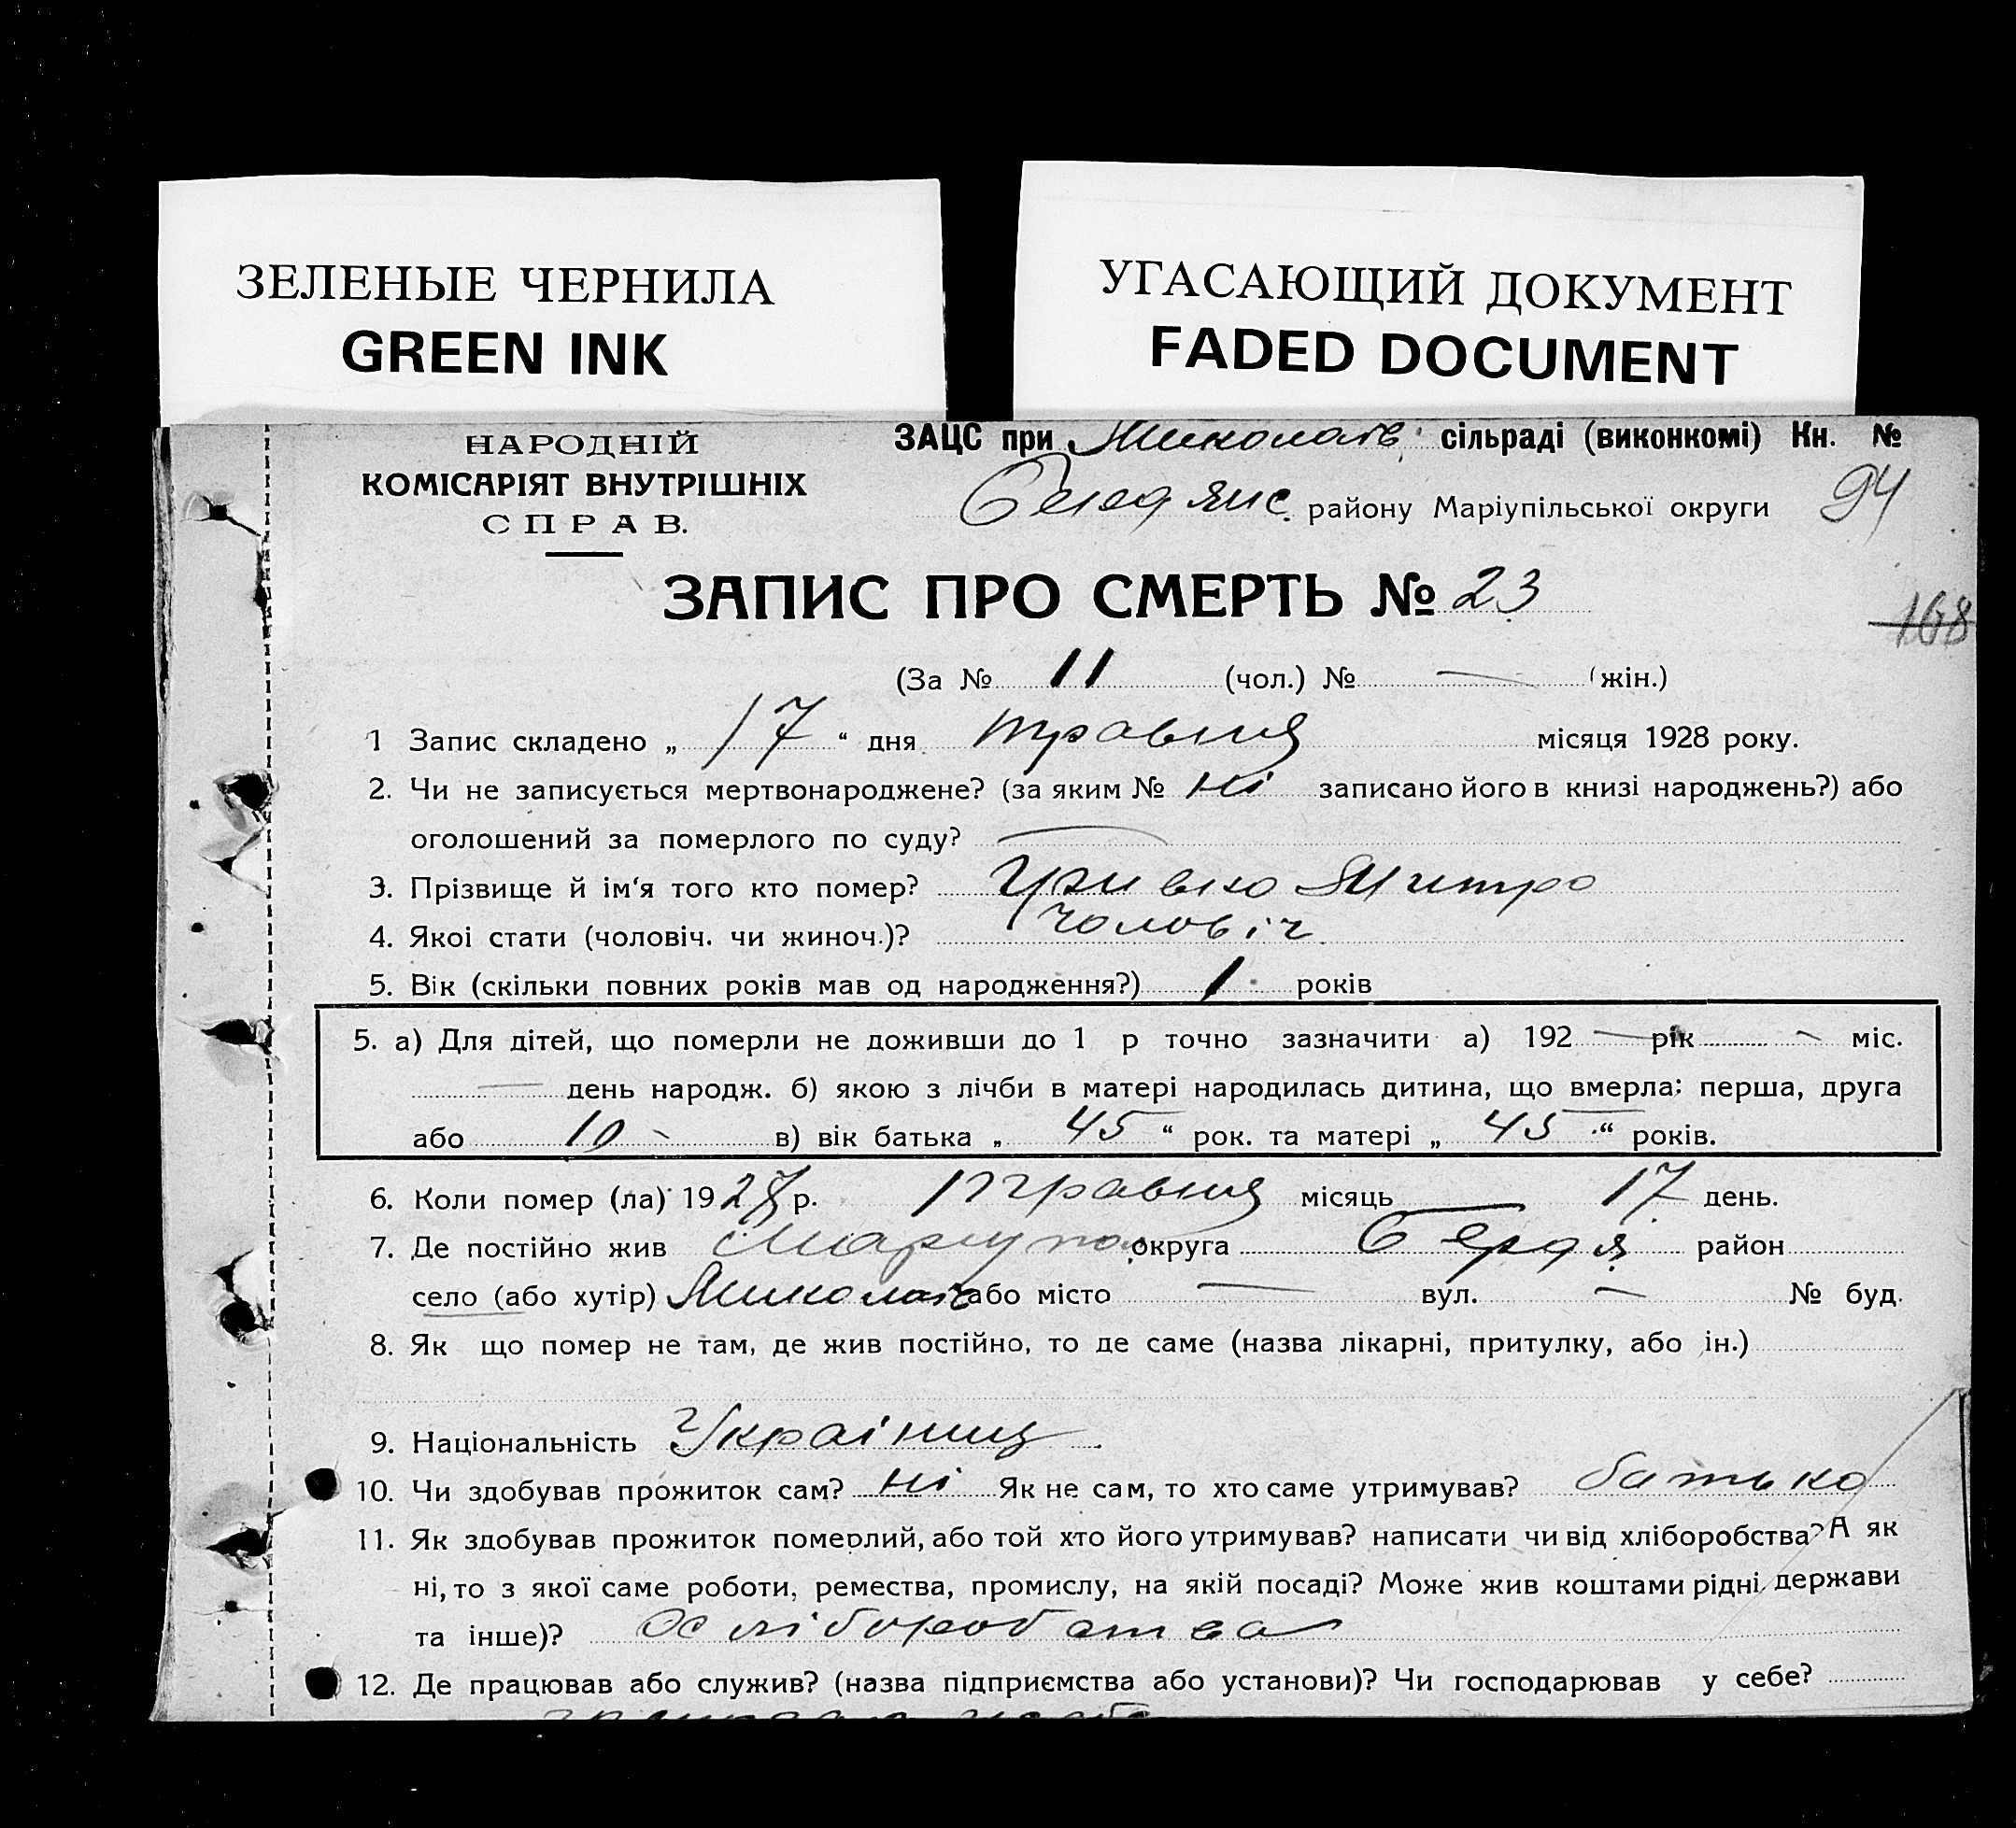 ЗЕЛЕНЫЕ ЧЕРНИЛА
GREEN INK
УГАСАЮЩИЙ ДОКУМЕНТ
FADED DOCUMENT
НАРОДНІЙ
КОМІСАРІЯТ ВНУТРІШНІХ
СПРАВ.
ЗАЦС при Миколаїв. сільраді (виконкомі) Кн. №
Бердянс. району Маріупільської округи 94
ЗАПИС ПРО СМЕРТЬ № 23
168
(За № 11 (чол.) № — (жін.)
1 Запис складено „ 17 “ дня травня місяця 1928 року.
2. Чи не записується мертвонароджене? (за яким № ні записано його в книзі народжень?) або
оголошений за померлого по суду? —
3. Прізвище й ім‘я того кто помер? Дмитро
4. Якоі стати (чоловіч. чи жиноч.)? чоловіч.
5. Вік (скільки повних років мав од народження?) 1 років
5. а) Для дітей, що померли не доживши до 1 р точно зазначити а) 192 — рік — міс.
— день народж. б) якою з лічби в матері народилась дитина, що вмерла: перша, друга
або 10 - в) вік батька „ 45 “ рок. та матері „ 45 “ років.
6. Коли помер (ла) 1928 р. травня місяць 17 день.
7. Де постійно жив Маріупол. округа Бердя район
село (або хутір) Миколаїв або місто — вул. — № буд.
8. Як що помер не там, де жив постійно, то де саме (назва лікарні, притулку, або ін.)
9. Національність Україниц
10. Чи здобував прожиток сам? ні Як не сам, то хто саме утримував? батько
11. Як здобував прожиток померлий, або той хто його утримував? написати чи від хліборобства? А як
ні, то з якої саме роботи, ремества, промислу, на якій посаді? Може жив коштами рідні, держави
та інше)? Хліборобства
12. Де працював або служив? (назва підприємства або установи)? Чи господарював у себе?